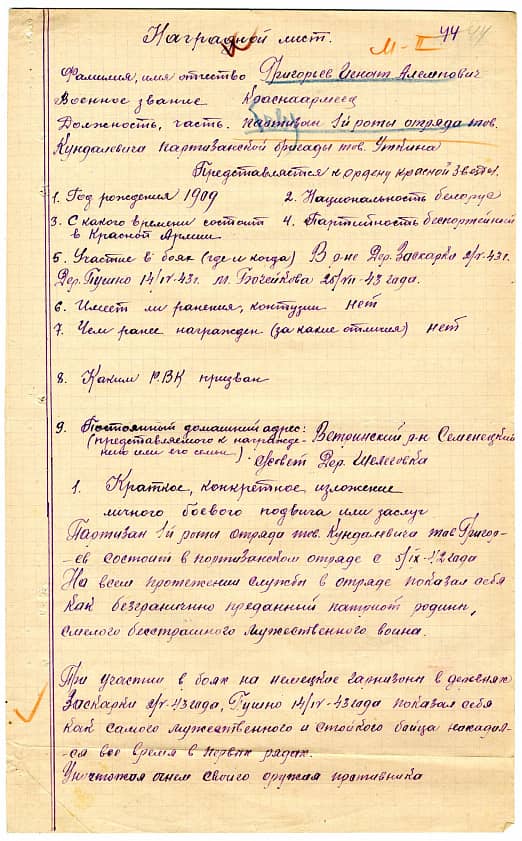 Наградной лист.
М-II 44 44
Фамилия, имя отчество Григорьев Игнат
Военное звание Красноармеец
Должность, часть. партизан 1й роты отряда тов.
Кундалевича партизанской бригады тов. Уткина
Представляется к ордену красной Звезды.
1. Год рождения 1909 2. Национальность белорус
3. С какого времени состоит 4. Партийность беспартейный
в Красной Армии
5. Участие в боях (где и когда) В р-не Дер. Заскарки 2/V-43г.
Дер. Пушно 14/IV-43г. м. Бочейково 26/VII-43 года.
6. Имеет ли ранения, контузии нет
7. Чем ранее награжден (за какие отличия) нет
8. Каким РВК призван
9. Постоянный домашний адрес: Ветринский р-н Семенецкий
(представляемого к награжде-
нию или его семьи) совет Дер.
1. Краткое, конкретное изложение
личного боевого подвига или заслуг
Партизан 1й роты отряда тов. Кундалевича тов Григор-
ев состоит в партизанском отряде с 5/IX-42 года
На всем протяжении службы в отряде показал себя
как безгранично преданный патриот родины,
смелого бесстрашного мужественного воина.
При участии в боях на немецкие гарнизоны в деревнях
Заскарки 2/V-43 года, Пушно 14/IV-43 года показал себя
как самого мужественного и стойкого бойца находил-
ся все время в первых рядах.
Уничтожая огнем своего оружия противника